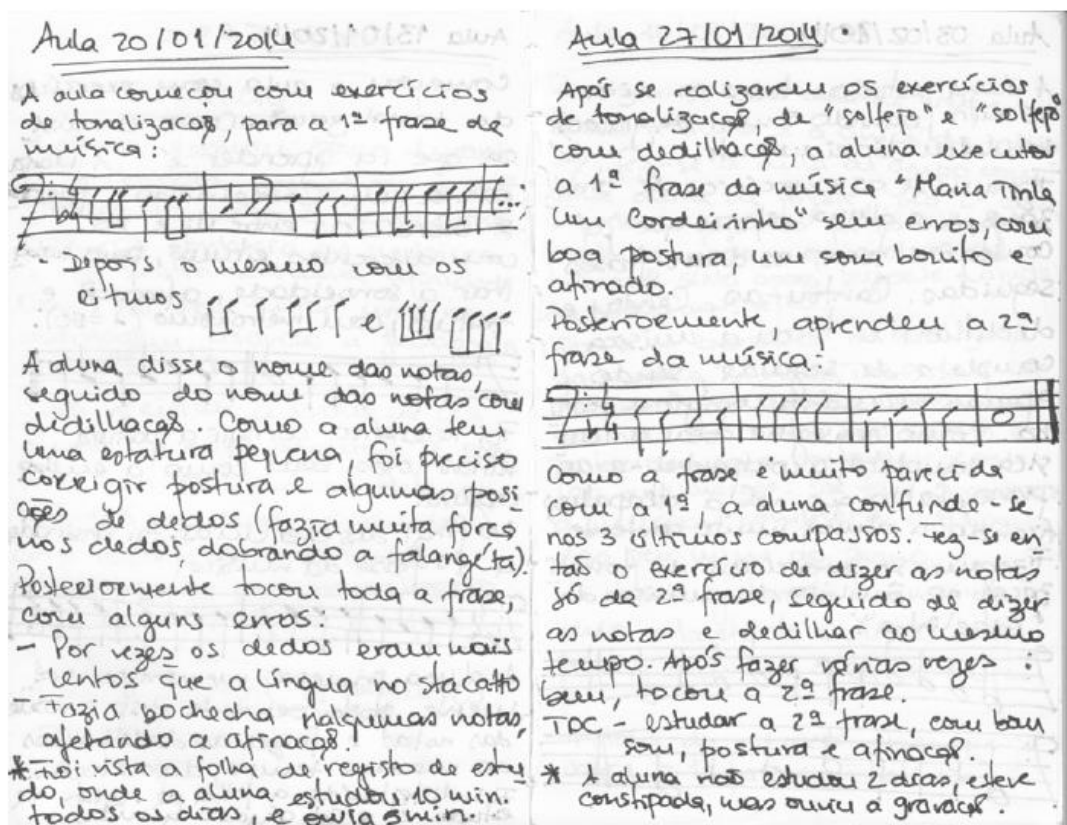 Aula 20/01/2014
A aula começou com exercícios
de tonalização, para a 1ª frase de
música:
- Depois o mesmo com os
ritmos e
A aluna disse o nome das notas,
seguido do nome das notas com
dedilhação. Como a aluna tem
uma estatura pequena, foi preciso
corrigir postura e algumas posi
ções de dedos (fazia muita força
nos dedos dobrando a falangeta).
Posteriormente tocou toda a frase,
com alguns erros:
- Por vezes os dedos eram mais
lentos que a língua no staccatto
- Fazia bochecha nalgumas notas,
afetando a afinação.
* Foi vista a folha de registo de estu
do, onde a aluna estudou 10 min.
todos os dias, e ouviu 5 min.
Aula 27/01/2014
Após se realizarem os exercícios
de tonalização, de "solfejo" e "solfejo
com dedilhação", a aluna executou
a 1ª frase da música "Maria Tinha
um Cordeirinho" sem erros, com
boa postura, um som bonito e
afinado.
Posteriormente, aprendeu a 2ª
frase da música:
Como a frase é muito parecida
com a 1ª, a aluna confunde-se
nos 3 últimos compassos. Fez-se en
tão o exercício de dizer as notas
só da 2ª frase, seguido de dizer
as notas e dedilhar ao mesmo
tempo. Após fazer várias vezes
bem, tocou a 2ª frase.
TPC - estudar a 2ª frase, com bom
som, postura e afinação.
* A aluna não estudou 2 dias, esteve
constipada, mas ouviu a gravação.